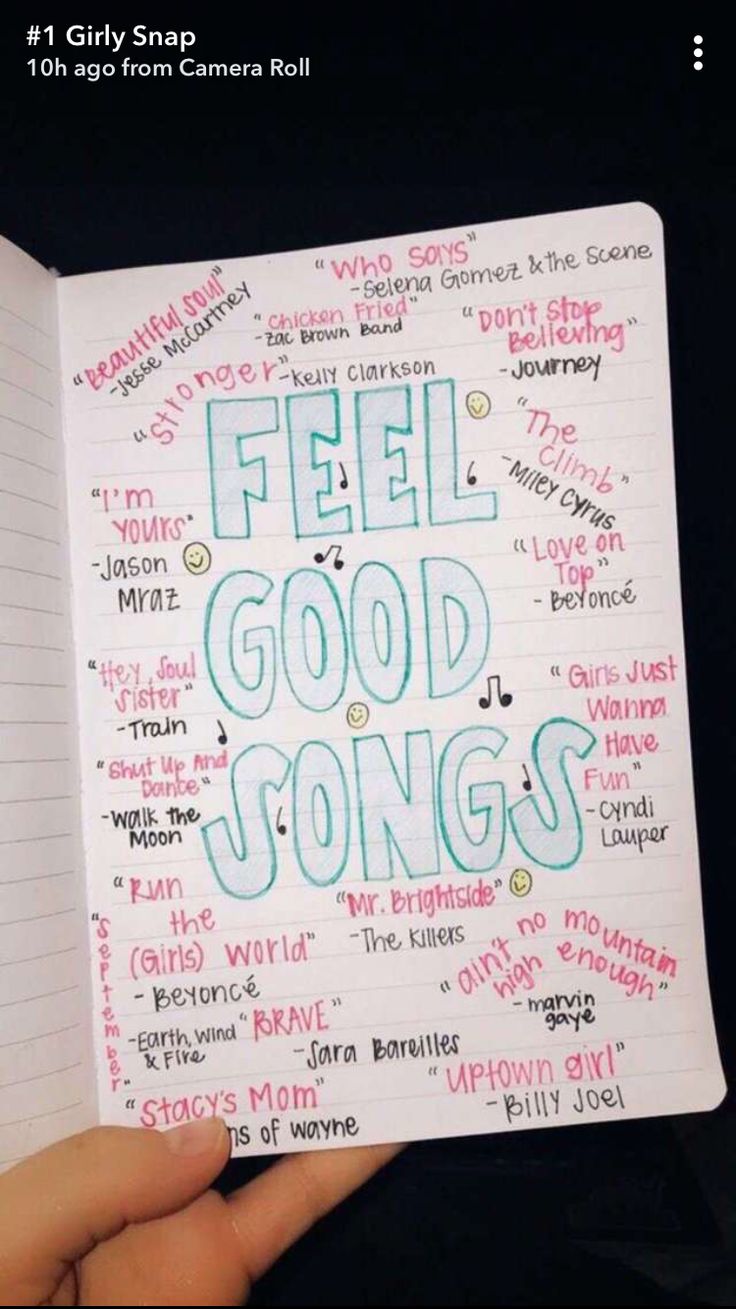 #1 Girly Snap
10h ago from Camera Roll
"Who Says"
-Selena Gomez & the Scene
"Beautiful Soul"
-Jesse McCartney
"Chicken Fried"
-Zac Brown Band
"Don't Stop
Believing"
-Journey
"Stronger"
-Kelly Clarkson
FEEL
"The
Climb"
-Miley Cyrus
"I'm
Yours"
-Jason
Mraz
"Love on
Top"
- Beyoncé
GOOD
"Hey, Soul
Sister"
-Train
"Girls Just
Wanna
Have
Fun"
-Cyndi
Lauper
"Shut Up And
Dance"
-Walk the
Moon
SONGS
"Run
the
(Girls) World"
- Beyoncé
"Mr. Brightside"
-The Killers
"ain't no mountain
high enough"
-marvin
gaye
"September"
-Earth, Wind
& Fire
"BRAVE"
-Sara Bareilles
"Stacy's Mom"
ns of wayne
"Uptown girl"
-Billy Joel